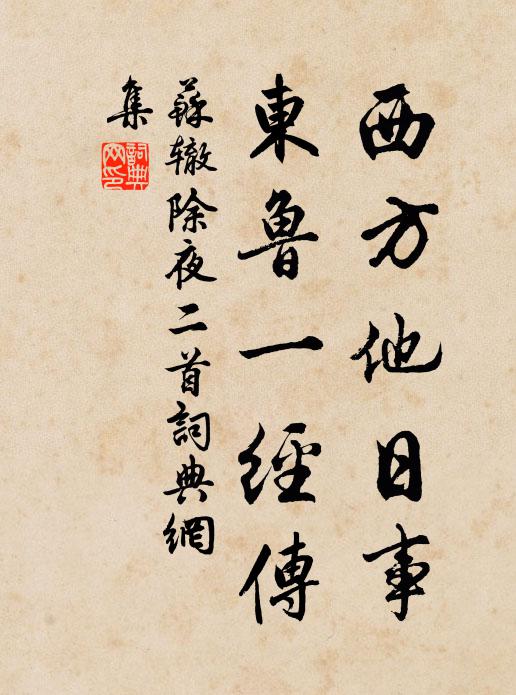 西方他日事
東魯一經傳
蘇辙除夜二首詞典網
集
詞典
网印